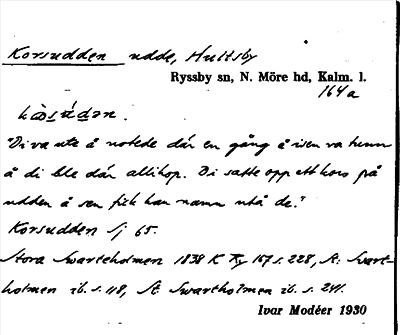 Korsudden udde, Hultsby
Ryssby sn, N. Möre hd, Kalm. l.
164a
"Di va ute å notede där en gång å isen va tunn
å di ble där allihop. Di satte opp ett kors på
udden å sen fick han namn utå de."
Korsudden Sj 65.
Stora Svarteholmen 1838 K Ry 167 s. 228, St. Svart-
holmen ib. s. 118, St. Svartholmen ib. s. 241.
Ivar Modéer 1930